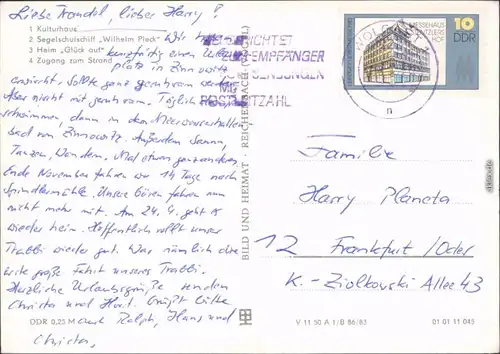 Liebe Traudel, lieber Harry!
1 Kulturhaus
2 Segelschulschiff "Wilhelm Pieck" Wir haben
3 Heim "Glück auf" kurzfristig einen Urlaubs
4 Zugang zum Strand platz in Zinnowitz
erwischt. Sollte ganz
Aber nicht mit gerechnet. Täglich
schwimmen, dann in den Meerwasserhallen
bad von Zinnowitz. Außerdem Sauna,
Tanzen, Wandern. Mal etwas ganz anderes,
Ende November fahren wir 14 Tage nach
Spindlermühle. Unsere Gören fahren nun
nicht mehr mit. Am 24.9. geht es
wieder heim. Hoffentlich rollt unser
Trabbi wieder gut. War nämlich die
erste große Fahrt unseres Trabbi.
Herzliche Urlaubsgrüße senden
Christa und Horst. Grüßt bitte
auch Ralph, Hans und
Christa,
DDR 0,25 M
BILD UND HEIMAT · REICHENBACH
RICHTET
EMPFÄNGER
SENDUNGEN
MIT
POSTLEITZAHL
WOLGAST
MESSEHAUS
HOF
10
DDR
Familie
Harry Planeta
12 Frankfurt/Oder
K.-Ziolkowski Allee 43
V 11 50 A 1/B 86/83
01 01 11 045